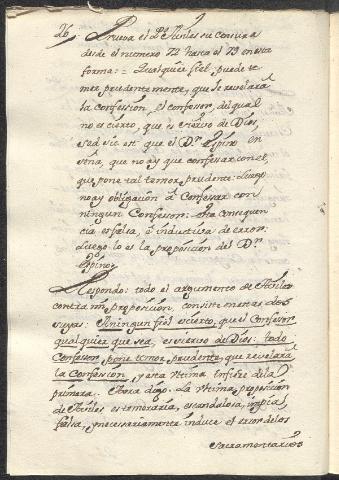 26. Prueva el Pe Aviles su censura
desde el numero 72 hasta el 79 en esta
forma: = Qualquier fiel, puede te
mer prudentemente, que le revelarà
la confession, el confessor, del qual
no es cierto, que es siervo de Dios,
sed sic est que el Dr. Espino en
seña, que no ay que confessar con el,
que pone tal temor prudente: Luego
no ay obligacion à Confessar con
ningun Confessor: esta consequen
cia es falsa, è inductiva de error:
Luego lo es la proposicion del Dr.
Espino.
Respondo: todo el argumento de Aviles
contra mi proposicion, consiste en estas dos
suyas: A ningun fiel es cierto, que el Confessor
qualquier que sea, es siervo de Dios: todo
Confessor, pone temor prudente, que revelarà
la Confession, y esta ultima infiere de la
primera. Aora digo. La ultima proposicion
de Aviles es temeraria, escandalosa, impia,
falsa, y necessariamente induce el error de los
Sacramentarios